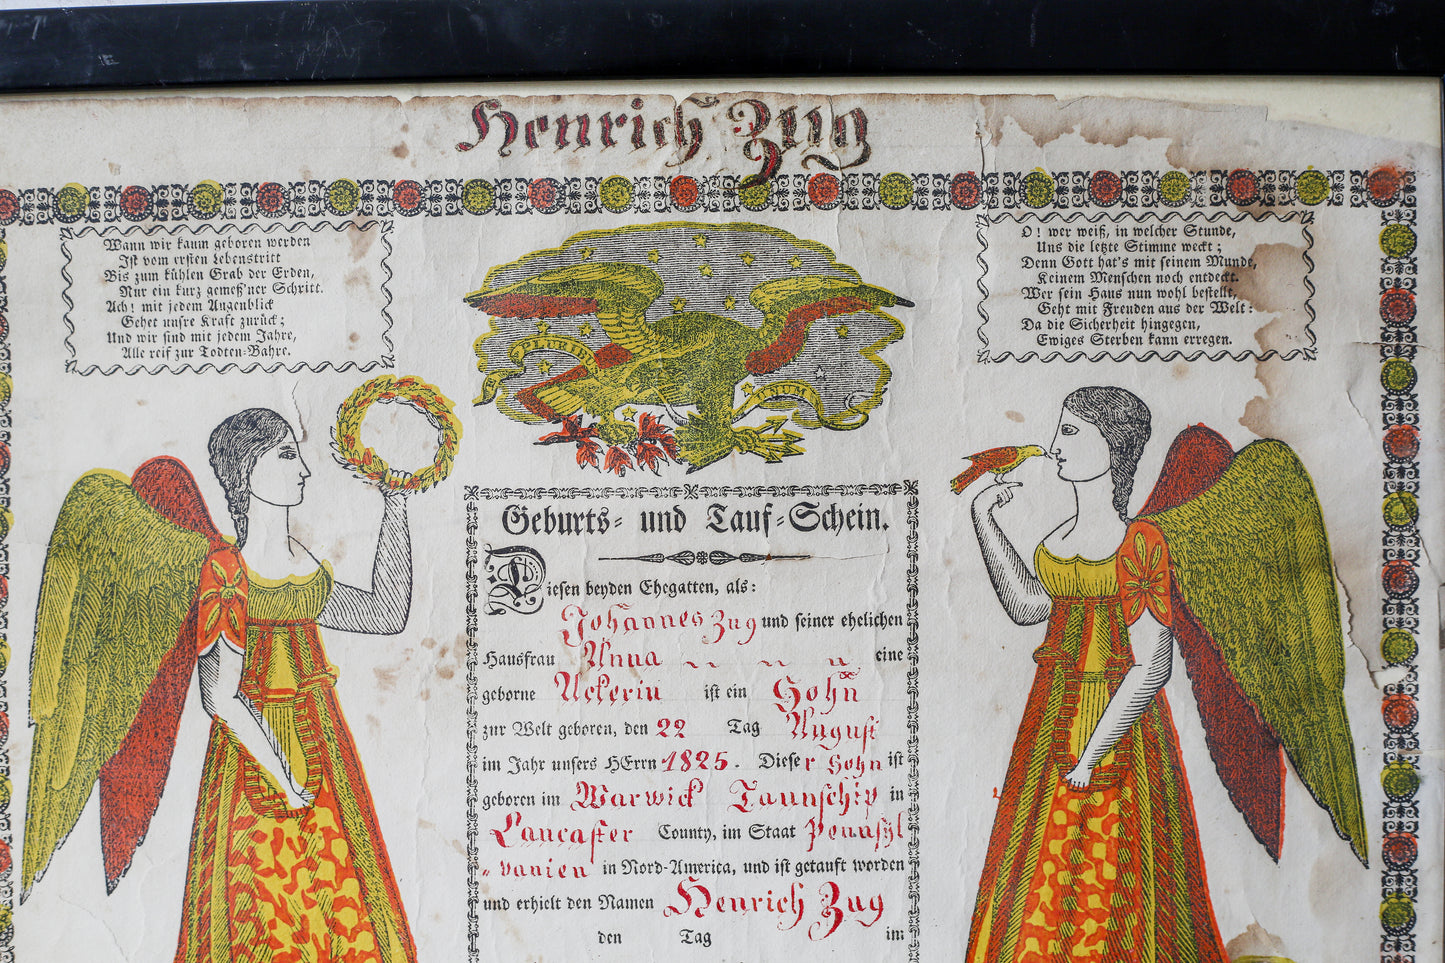 Henrich Zug
Wann wir kaum geboren werden
Ist vom ersten Lebenstritt
Bis zum kühlen Grab der Erden,
Nur ein kurz gemeß'ner Schritt.
Ach! mit jedem Augenblick
Gehet unsre Kraft zurück;
Und wir sind mit jedem Jahre,
Alle reif zur Todten-Bahre.
O! wer weiß, in welcher Stunde,
Uns die letzte Stimme weckt;
Denn Gott hat's mit seinem Munde,
Keinem Menschen noch entdeckt.
Wer sein Haus nun wohl bestellt,
Geht mit Freuden aus der Welt:
Da die Sicherheit hingegen,
Ewiges Sterben kann erregen.
E PLURIBUS UNUM
Geburts- und Tauf-Schein.
Diesen beyden Ehegatten, als:
Johannes Zug und seiner ehelichen
Hausfrau Anna eine
geborne Ackerin ist ein Sohn
zur Welt geboren, den 22 Tag August
im Jahr unsers HErrn 1825. Dieser Sohn ist
geboren im Warwick Taunschip in
Lancaster County, im Staat Pennsyl
"vanien in Nord-America, und ist getauft worden
und erhielt den Namen Henrich Zug
den Tag im